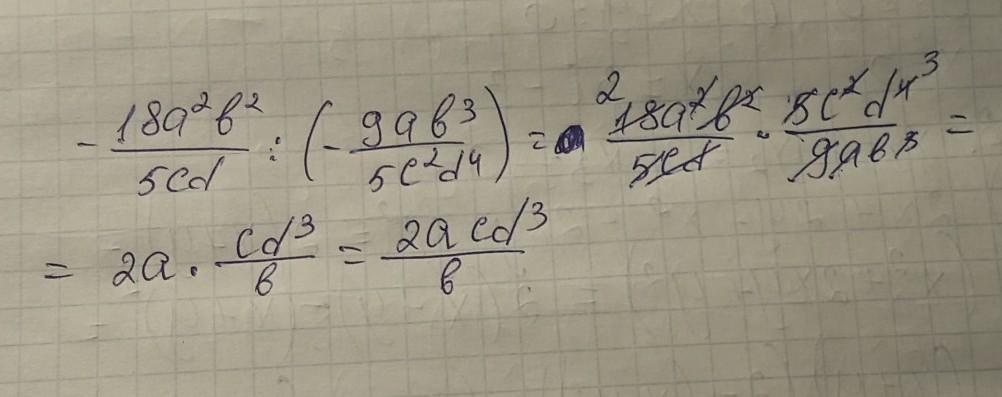 - 18a²b²/5cd : (- 9ab³/5c²d⁴) = 2 18a²b²/5cd · 5c²d⁴ 3/9ab³ =
= 2a · cd³/b = 2acd³/b